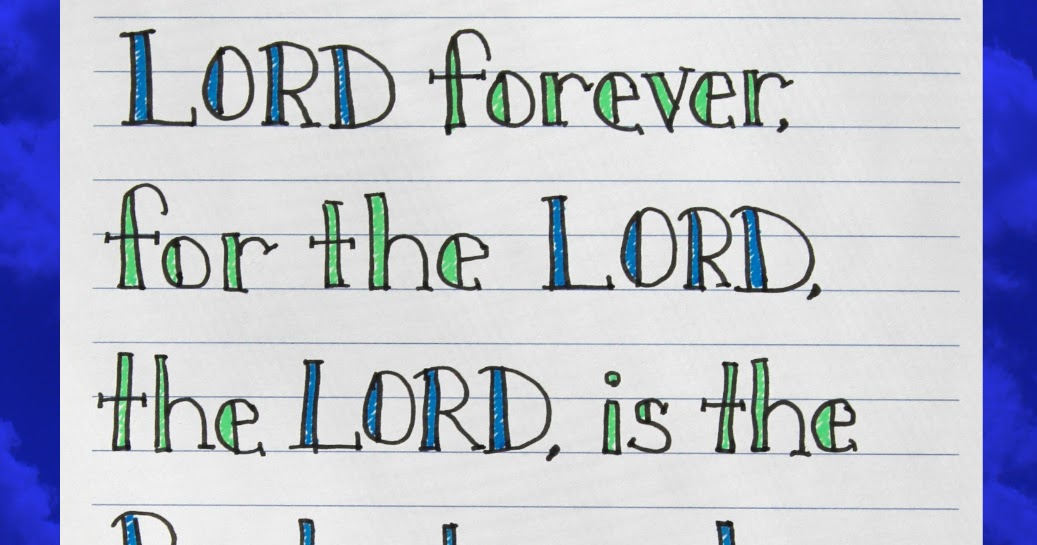 LORD forever,
for the LORD,
the LORD, is the